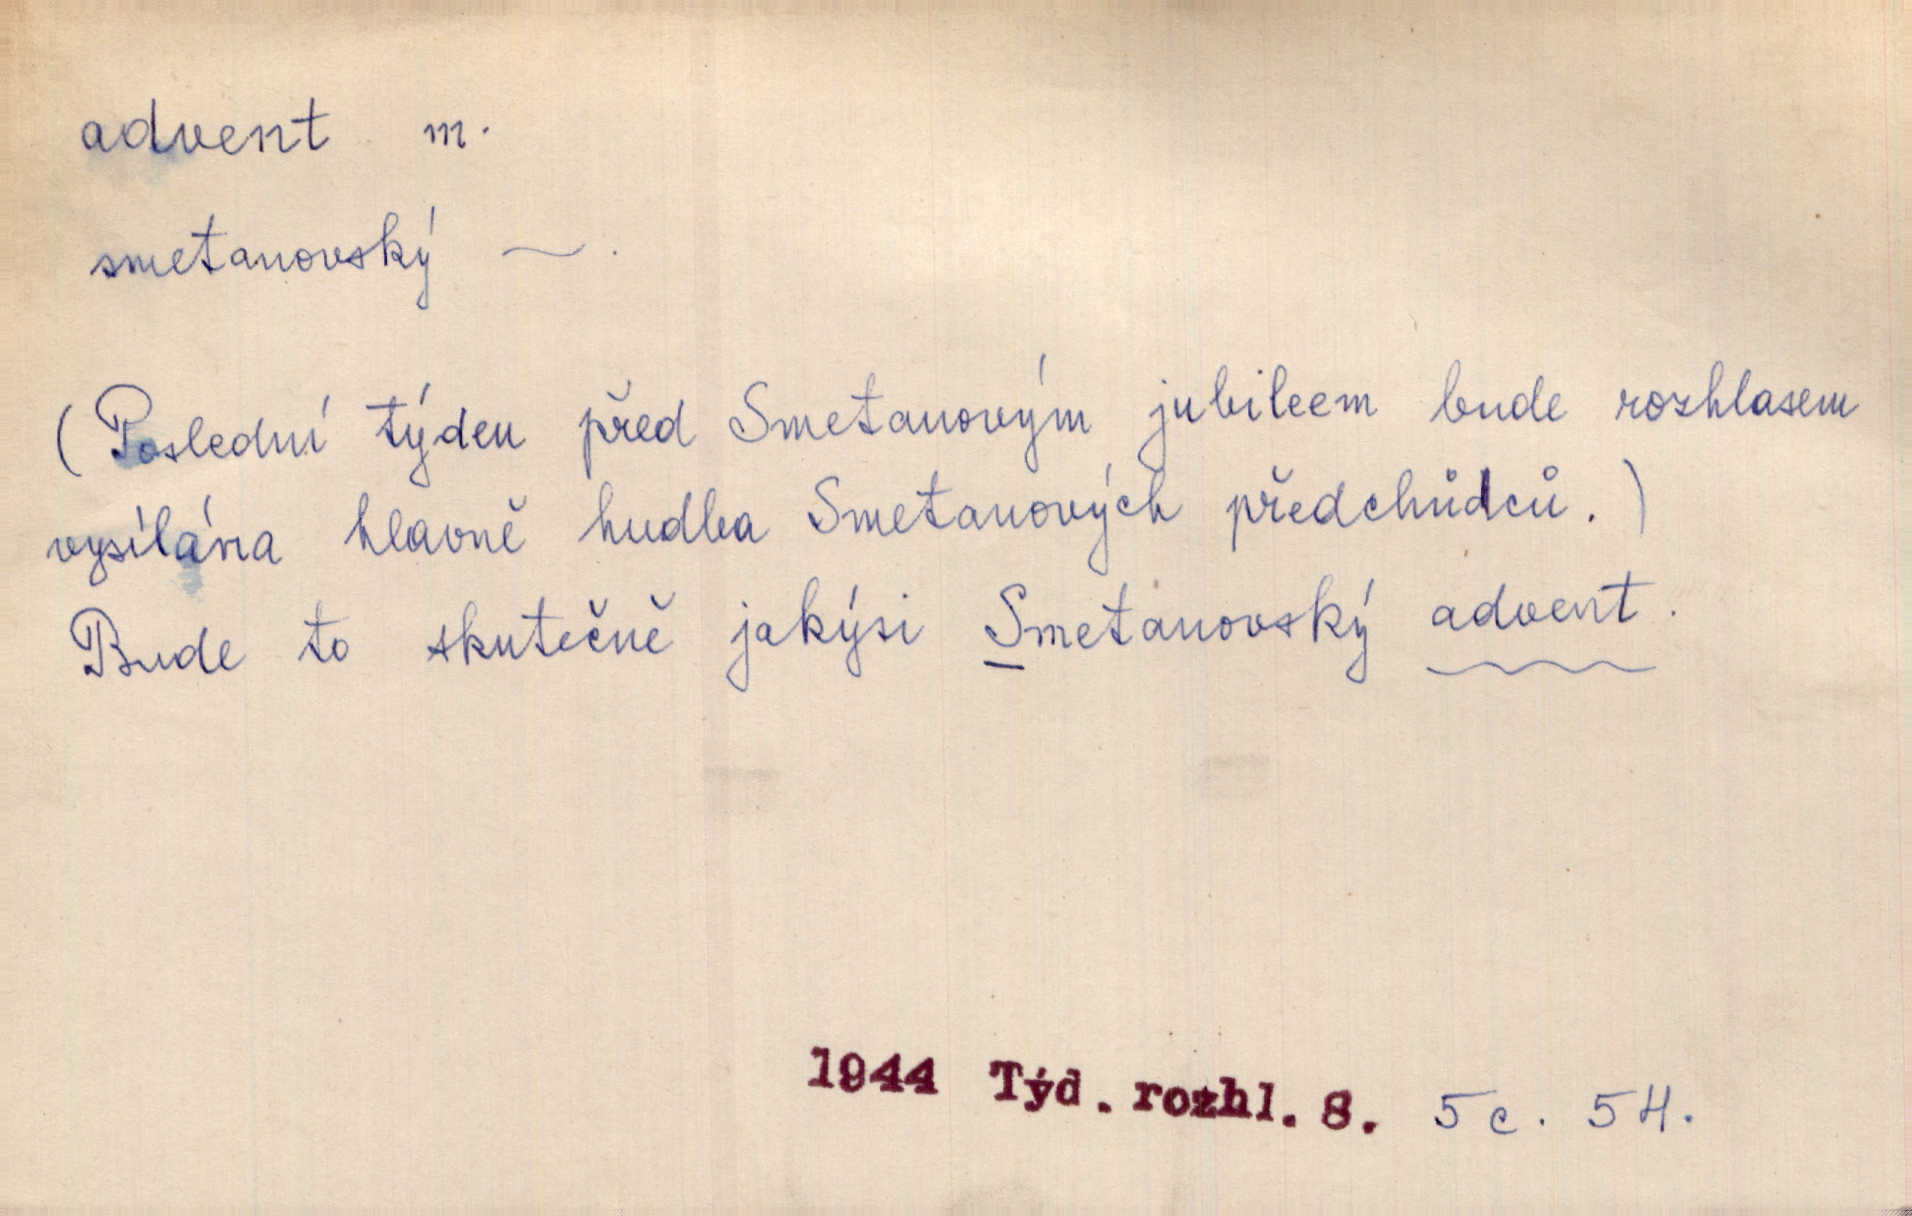 advent m.
smetanovský ~.
(Poslední týden před Smetanovým jubileem bude rozhlasem
vysílána hlavně hudba Smetanových předchůdců.)
Bude to skutečně jakýsi Smetanovský advent.
1944 Týd. rozhl. 8. 5c. 54.